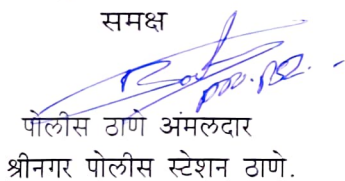 समक्ष
पोलीस ठाणे अंमलदार
श्रीनगर पोलीस स्टेशन ठाणे.